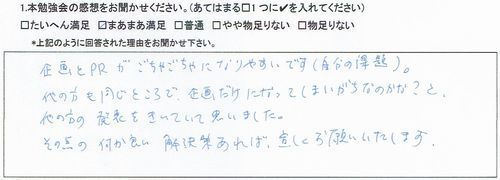 1.本勉強会の感想をお聞かせください。(あてはまる□1つに✔を入れてください)
□たいへん満足 ☑まあまあ満足 □普通 □やや物足りない □物足りない
*上記のように回答された理由をお聞かせ下さい。
企画とPRがごちゃごちゃになりやすいです(自分の課題)。
他の方も同じところで、企画だけになってしまいがちなのかな?と、
他の方の発表をきいていて思いました。
その点の何か良い解決策あれば、宜しくお願いいたします。